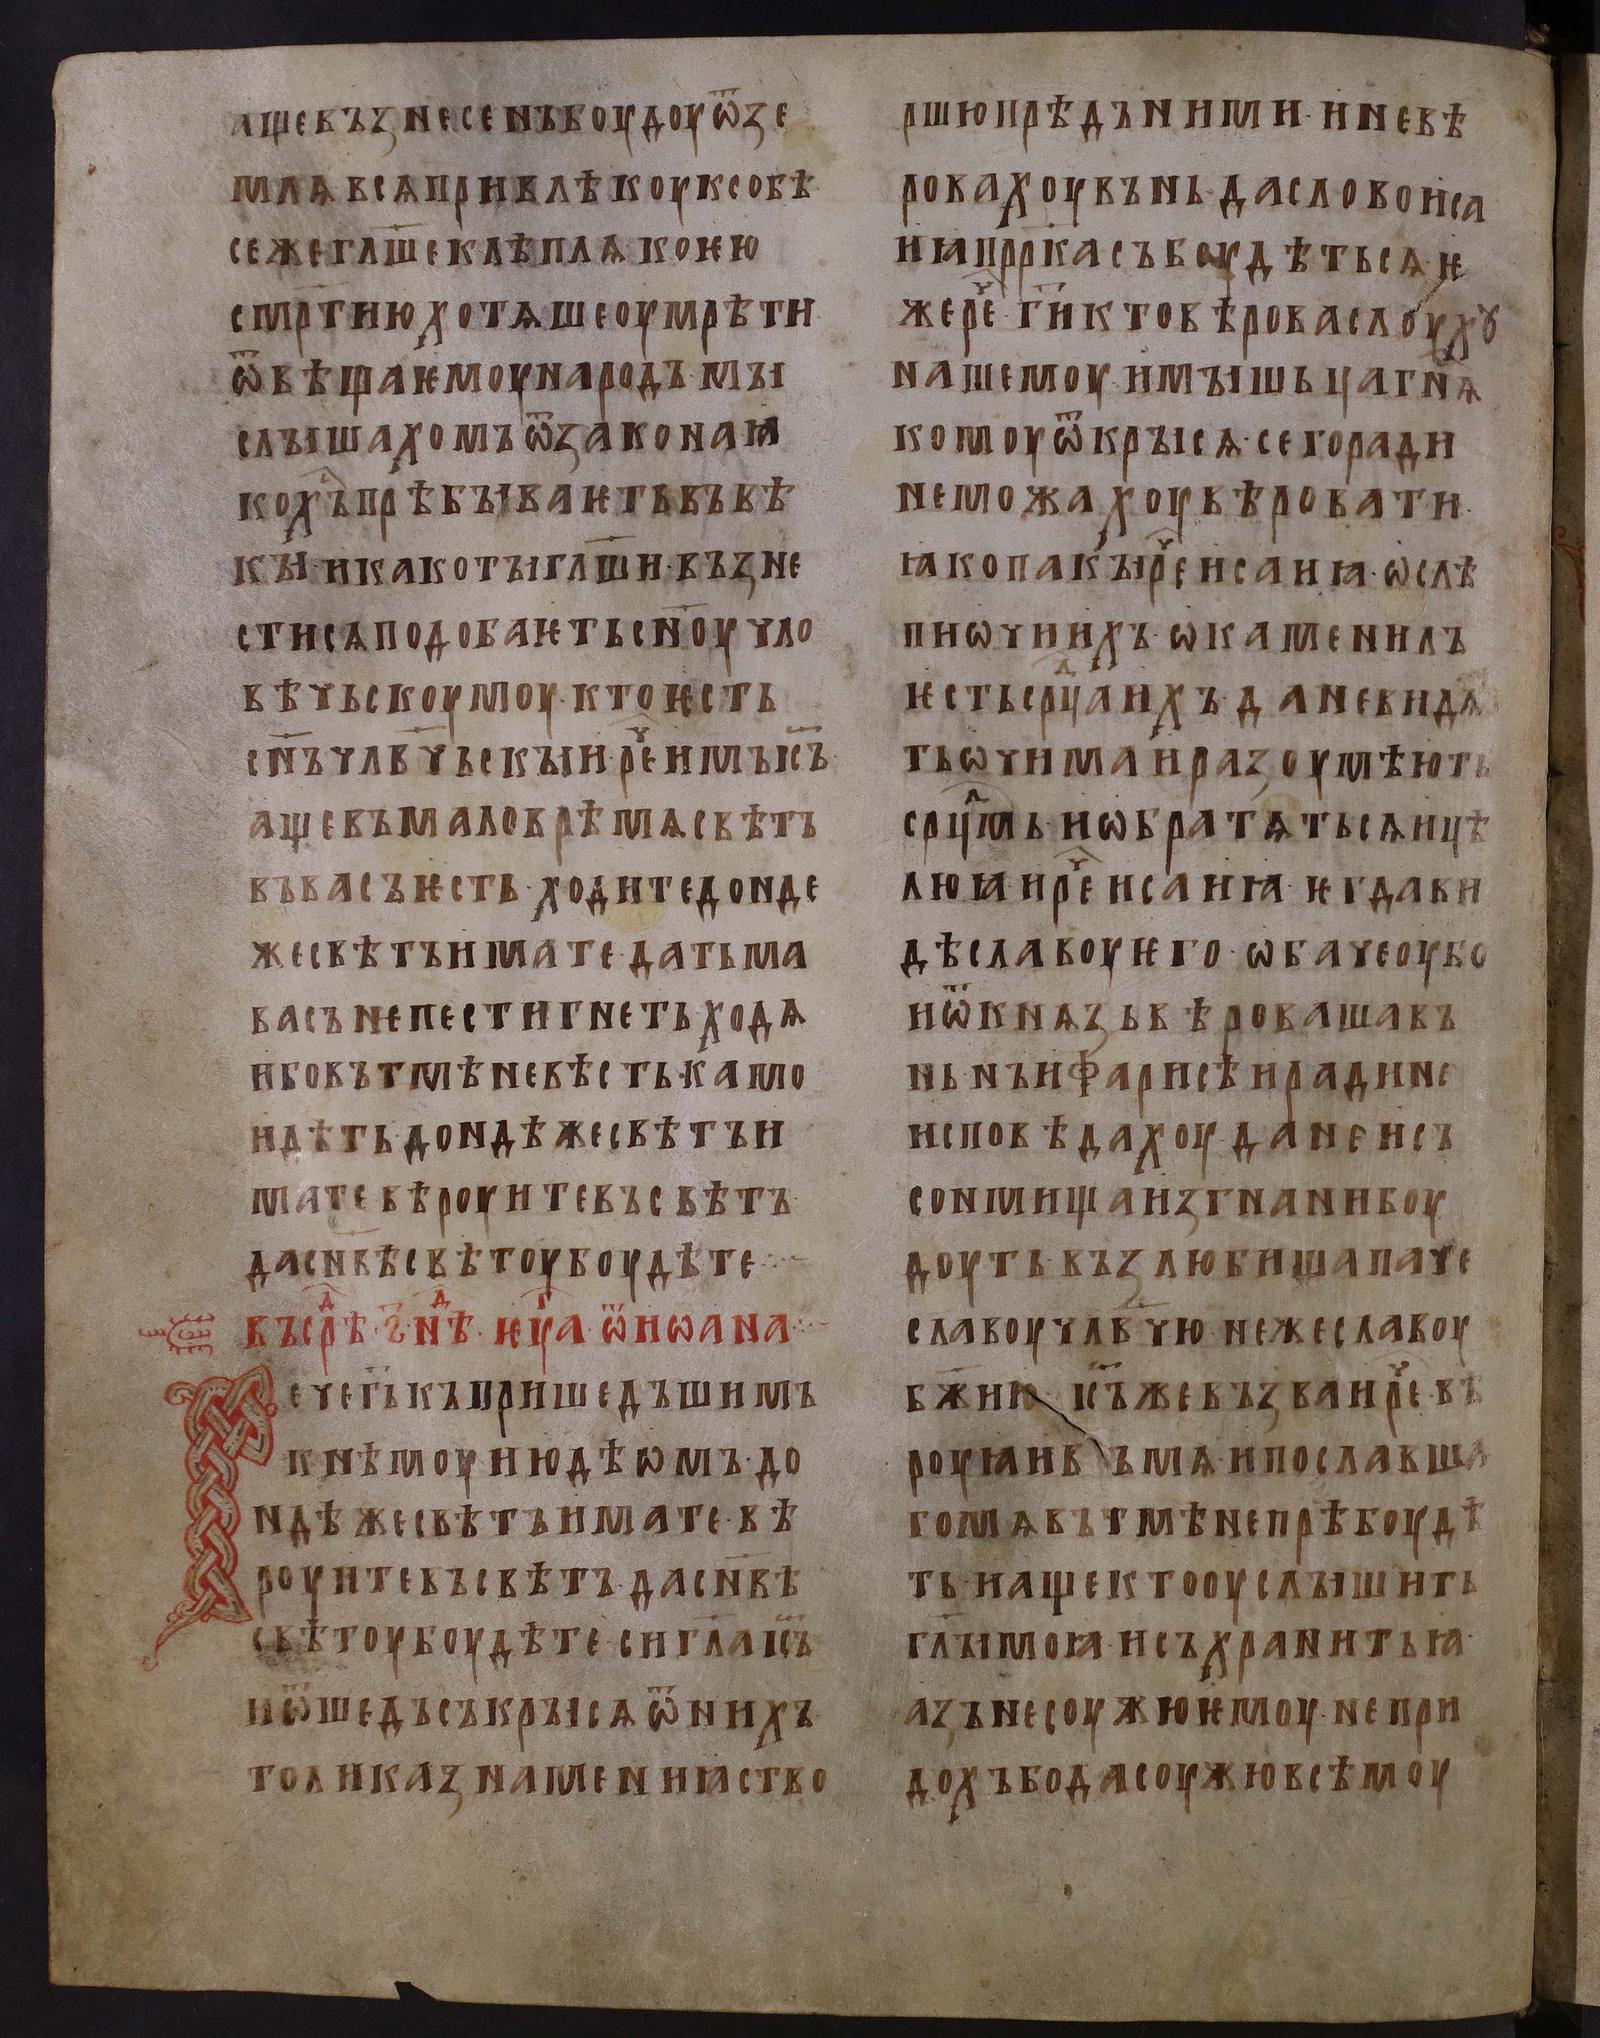 ащевъзнесенъбоудоуѿзе
млѧвсѧпривлѣкоуксобѣ·
сежегл҃шеклѣплѧкоѥю
смрт҃июхотѧшеоумрѣти
ѿвѣщаѥмоународъ·мꙑ
слꙑшахомъѿзаконаꙗ
кох҃ъпрѣбꙑваѥтьвъвѣ
кꙑ·икакотꙑгл҃ши·възне
стисѧподобаѥтьсн҃оучло
вѣчьскоумоу·ктоѥсть
сн҃ъчлв҃чьскꙑирⷱ҇еимъіс҃ъ·
ащевъмаловрѣмѧсвѣтъ
въвасъѥсть·ходитедонде
жесвѣтъимате·датьма
васънепестигнеть·ходѧ
ибовътмѣневѣсть·камо
идѣть·дондѣжесвѣтъи
матевѣроуитевъсвѣтъ·
дасн҃вѣсвѣтоубоудѣте·:·
въсрⷣѣ·г҃·нⷣѣ·ѥуⷢ҇а·ѿиѡана·:·
ечегь҃къпришедъшимъ
кнѣмоуиюдѣѡмъ·до
ндѣжесвѣтъимате·вѣ
роуитевъсвѣтъ·дасн҃вѣ
свѣтоубоудѣте·сигл҃аіс҃ъ
иѿшедъсъкрꙑсѧѿнихъ·
толиказнамениꙗство
ршюпрѣдъними·иневѣ
ровахоувънь·дасловоиса
иꙗпррк҃асъбоудѣтьсѧѥ
жерⷱ҇е·ги҃ктовѣроваслоухꙋ
нашемоу·имꙑшьцагн҃ѧ
комоуѿкрꙑсѧ·сегоради
неможахоувѣровати·
ꙗкопакꙑрⷱ҇еисаиꙗ·ѡслѣ
пиѡчиихъ·ѡкаменилъ
ѥстьсрⷣцаихъ·даневидѧ
тьѡчимаиразоумѣють
срⷣцмь·иѡбратѧтьсѧицѣ
люꙗирⷱ҇еисаиꙗ·ѥгдави
дѣславоуѥго·ѡбачеоубо
иѿкнѧзьвѣровашавъ
нь·нъифарисѣирадине
исповѣдахоу·данеисъ
сонмищаизгнанибоу
доуть·възлюбишапаче
славоучлв҃чю·нежеславоу
бж҃ию·іс҃ъжевъзваирⷱ҇е·вѣ
роуꙗивъмѧ·ипославша
гомѧвътмѣнепрѣбоудѣ
ть·иащектооуслꙑшить
гл҃ꙑмоꙗ·исъхранитьꙗ·
азънесоужюѥмоу·непри
дохъбодасоужювсѣмоу